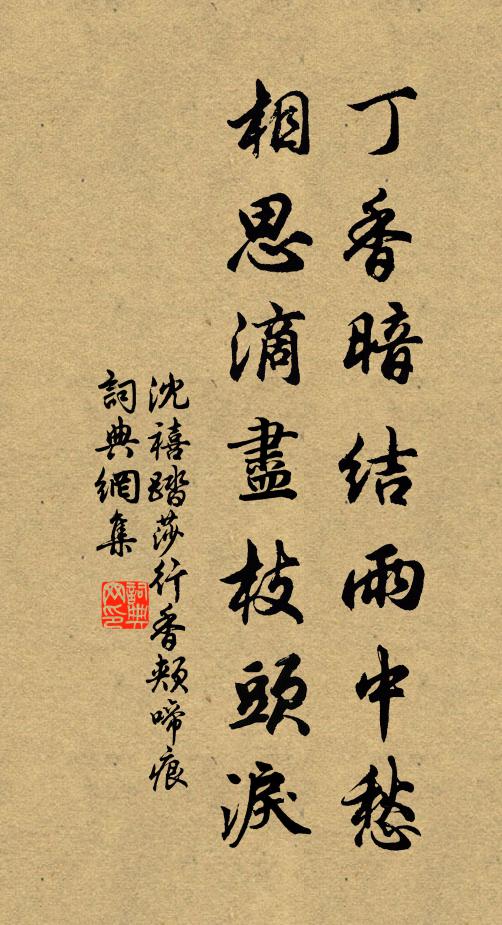 丁香暗結雨中愁
相思滴盡枝頭淚
沈禧踏莎行香頰啼痕
詞典網集
詞典
网印